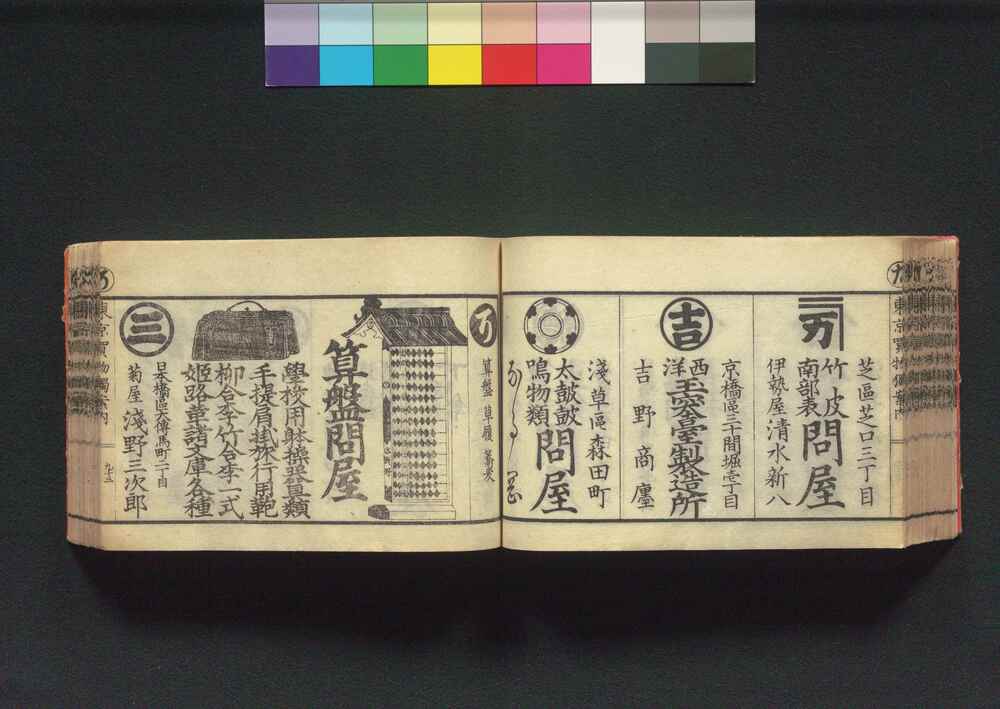 芝區芝口三丁目
竹皮
南部表
問屋
伊勢屋清水新八
京橋區三十間堀壱丁目
西洋
玉突臺製造所
吉野商廛
吉
淺草區森田町
太鼓皷
鳴物類
問屋
算盤 草履 蓄炭
算盤問屋
學校用躰操器具類
手提肩掛旅行用鞄
柳合李竹合李一式
姫路革諸文庫各種
三
菊屋 淺野三次郎
東京買物獨案内